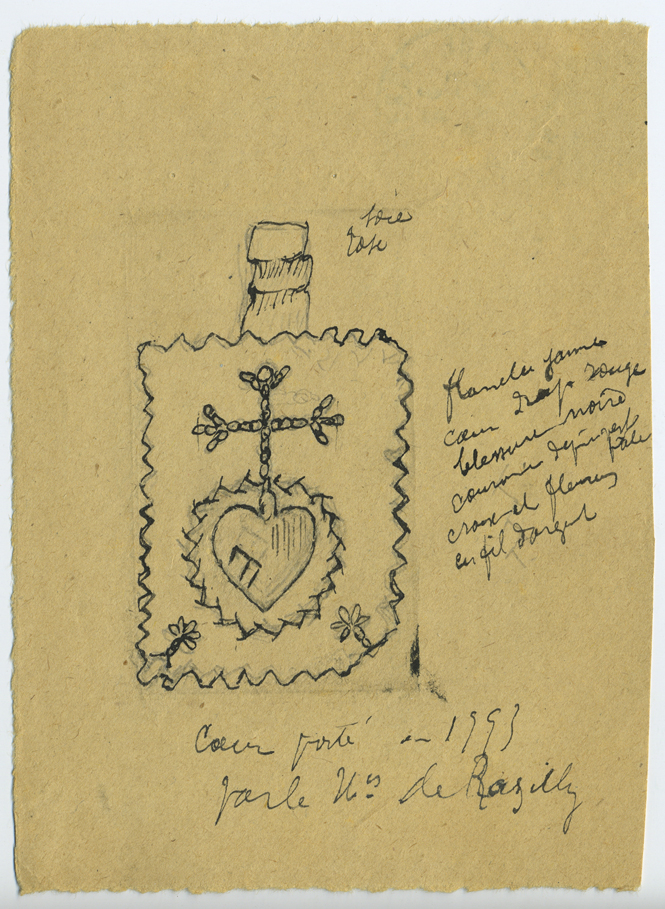 soie
rose
flanelle jaune
cœur drap rouge
blessure noire
couronne d'épines vert pale
croix et fleurs
en fil d'argent
Cœur porté en 1793
par le Mis de Razilly